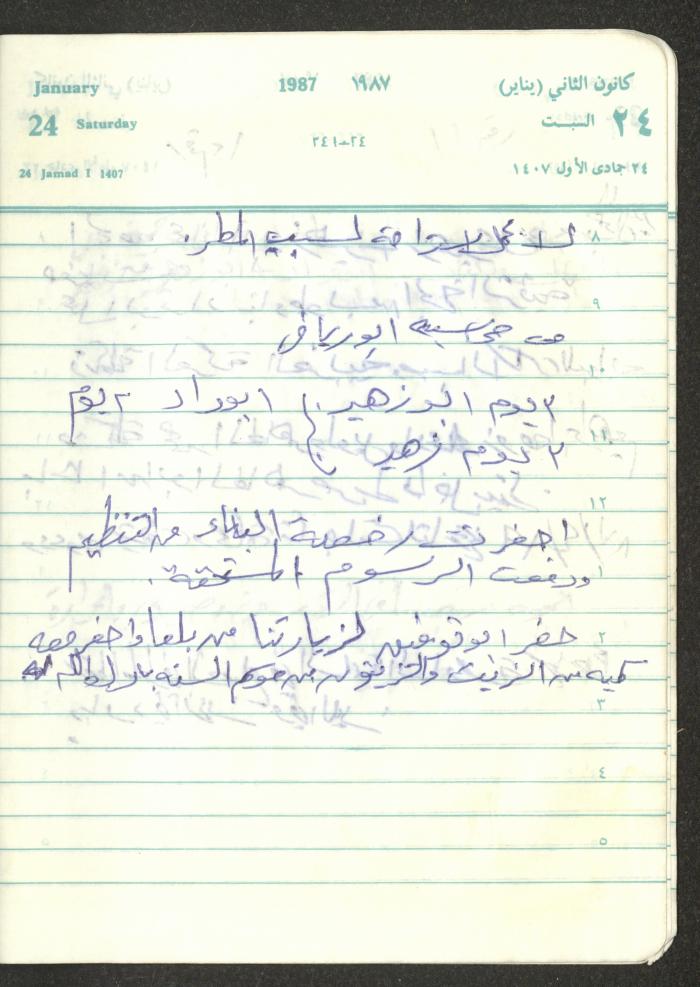 January
1987 ١٩٨٧
كانون الثاني (يناير)
24 Saturday
٢٤ السبت
٢٤-٣٤١
24 Jamad I 1407
٢٤ جمادى الأول ١٤٠٧
٨
لا عمل استراحة لسبب المطر.
٩
محاسبه ابو رياض
١٠
٣ يوم ابو زهير } ابو راد ٢ يوم
١١
٣ يوم زهير
١٢
احضرت رخصة البناء من التنظيم
١
ودفعت الرسوم المستحقة.
٢
حضر ابو توفيق لزيارتنا من بلعا واحضر معه
كميه من الزيت والزيتون من موسم السنه بارك الله له
٣
٤
٥